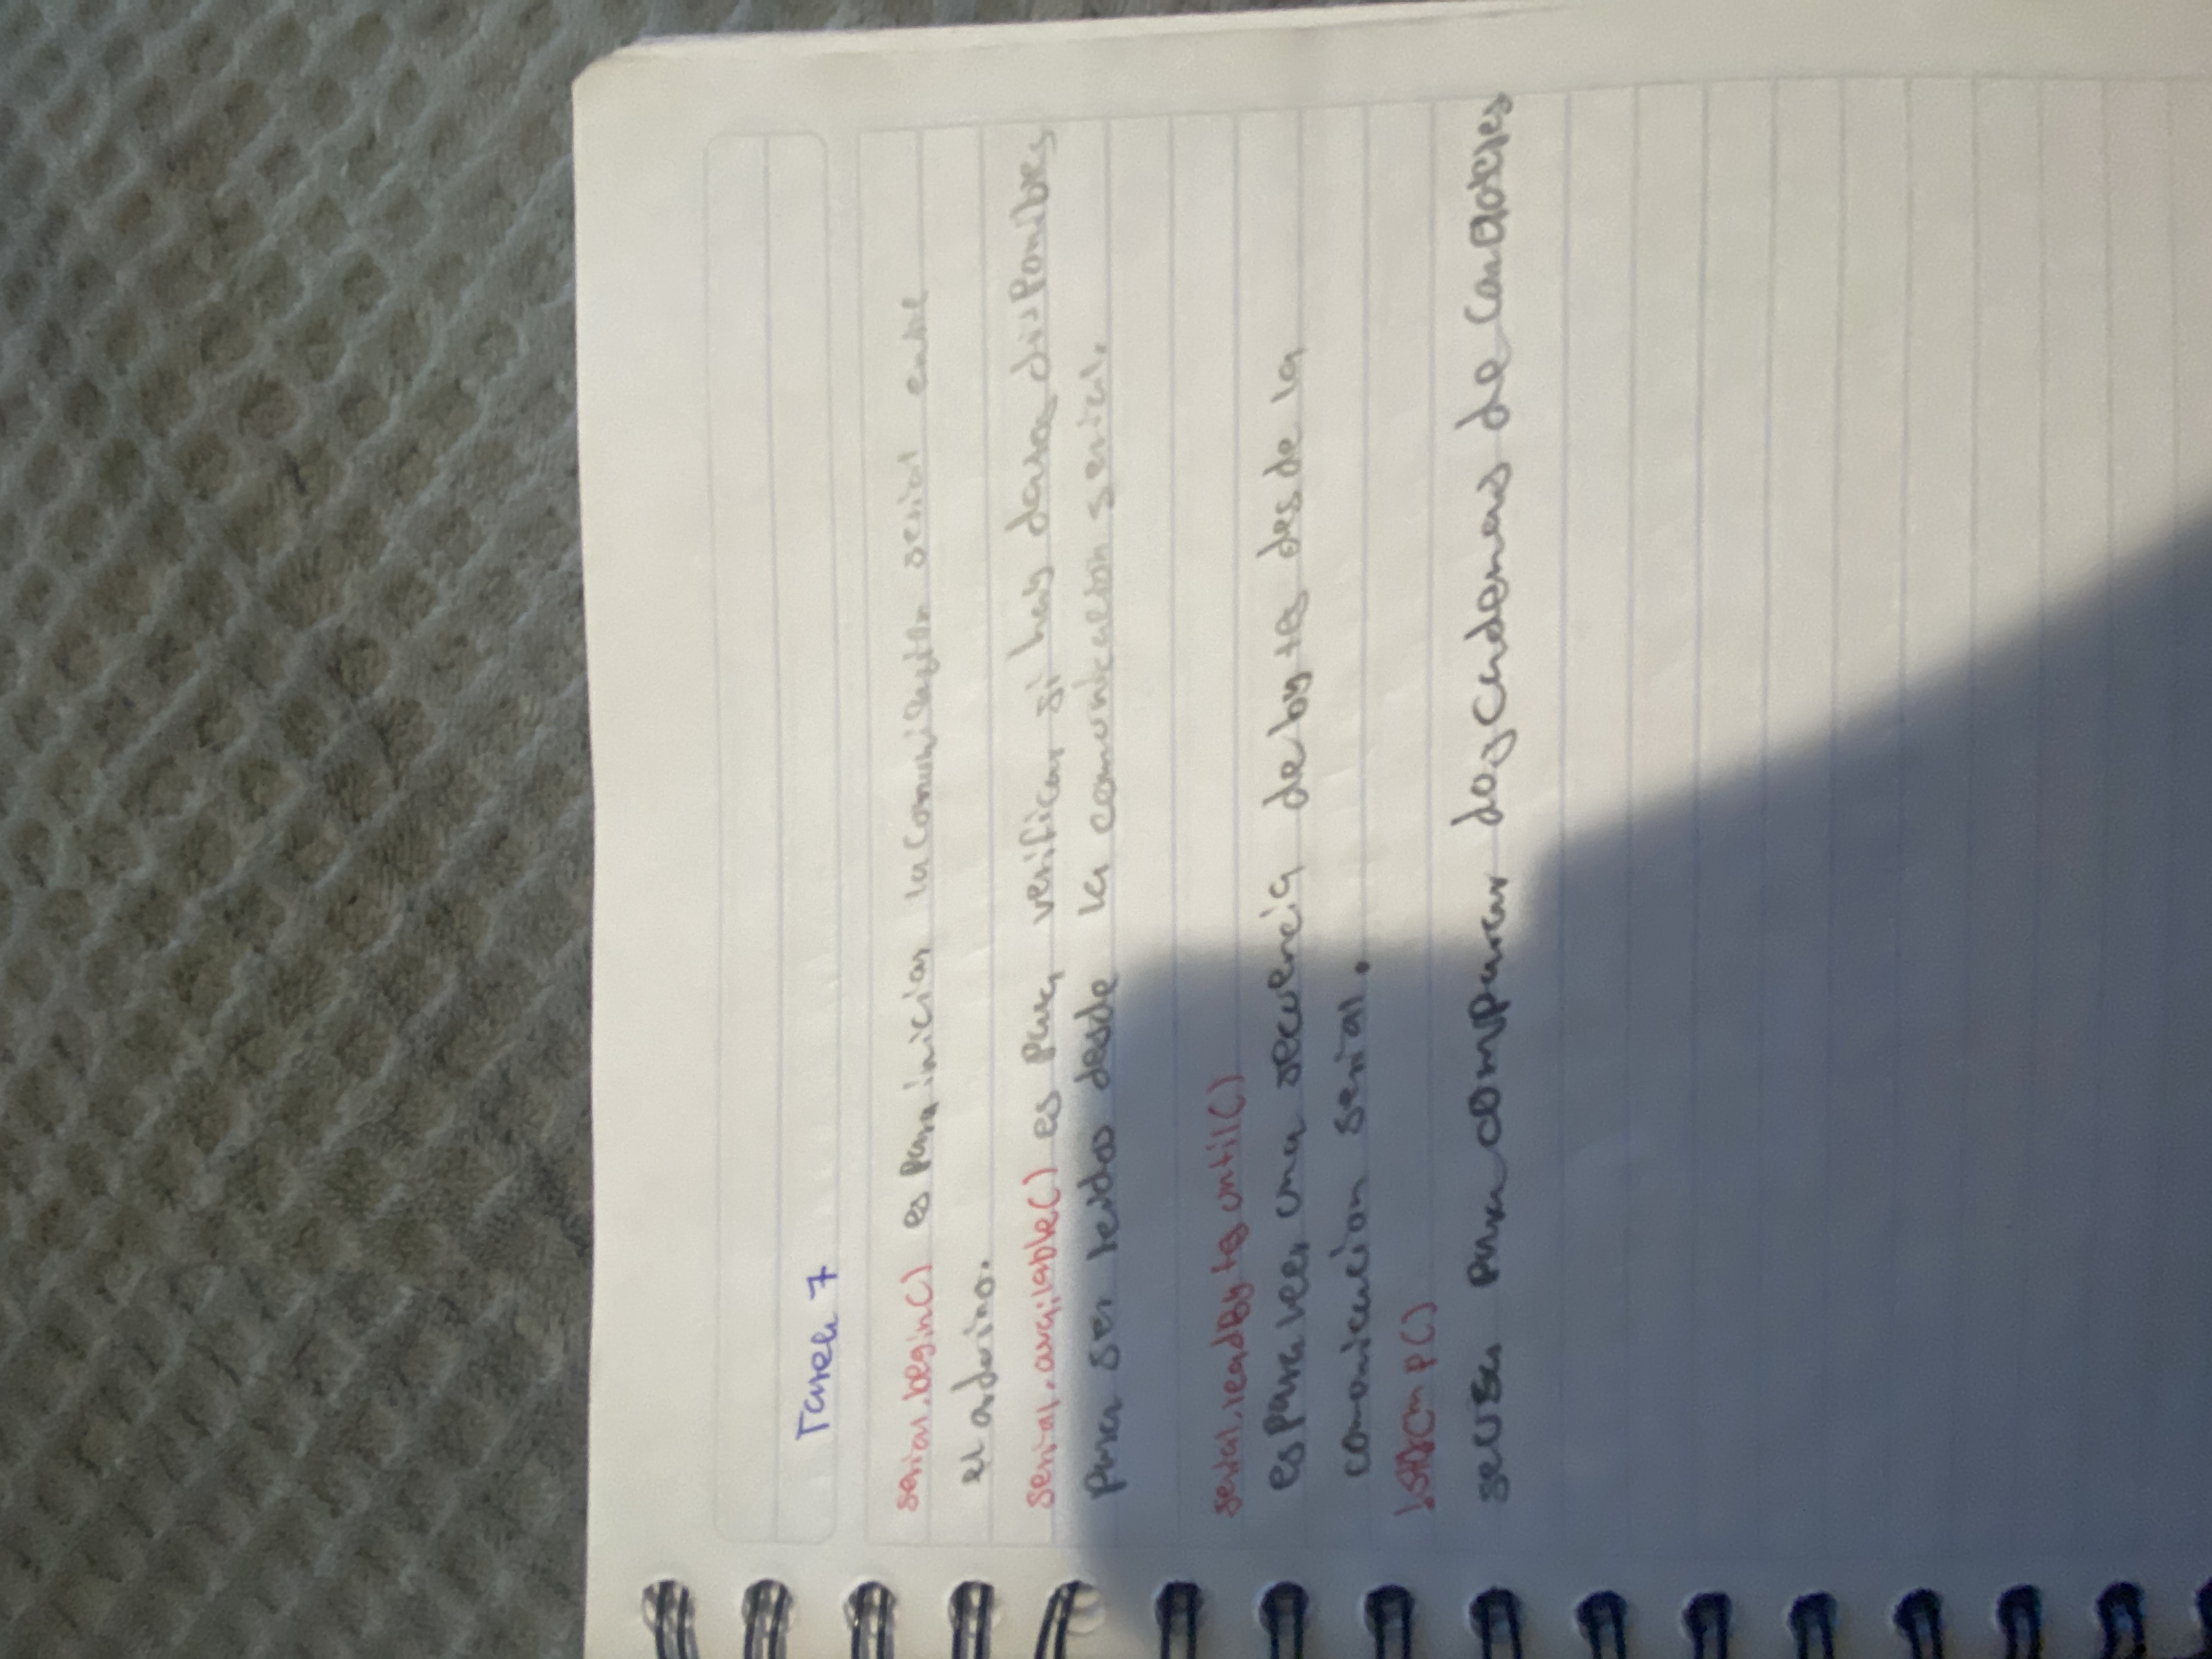 Tarea 7
serial.begin() es para iniciar la comunicación serial entre
el arduino.
serial.available() es para verificar si hay datos disponibles
para ser leidos desde la comunicacion serial.
serial.readBytes until()
es para leer una secuencia de bytes desde la
comunicacion serial.
se usa para comparar dos cadenas de caracteres